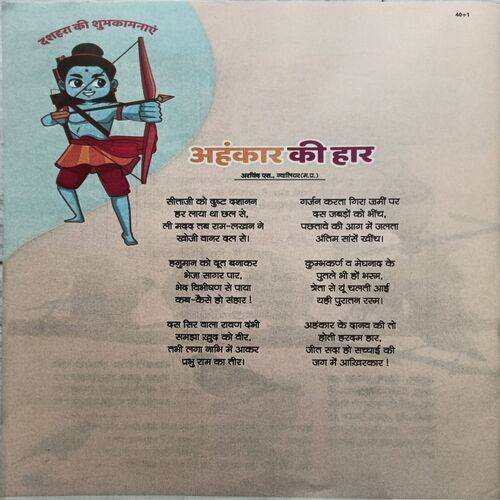 40+1
दशहरा की शुभकामनाएं
अहंकार की हार
अरविंद एस., ग्वालियर(म.प्र.)
सीताजी को दुष्ट दशानन
हर लाया था छल से,
ली मदद तब राम-लखन ने
खोजी वानर दल से।
हनुमान को दूत बनाकर
भेजा सागर पार,
भेद विभीषण से पाया
कब-कैसे हो संहार !
दस सिर वाला रावण दंभी
समझा ख़ुद को वीर,
तभी लगा नाभि में आकर
प्रभु राम का तीर।
गर्जन करता गिरा जमीं पर
दस जबड़ों को भींच,
पछतावे की आग में जलता
अंतिम सांसें खींच।
कुम्भकर्ण व मेघनाद के
पुतले भी हों भस्म,
त्रेता से यूं चलती आई
यही पुरातन रस्म।
अहंकार के दानव की तो
होती हरदम हार,
जीत सदा हो सच्चाई की
जग में आख़िरकार !